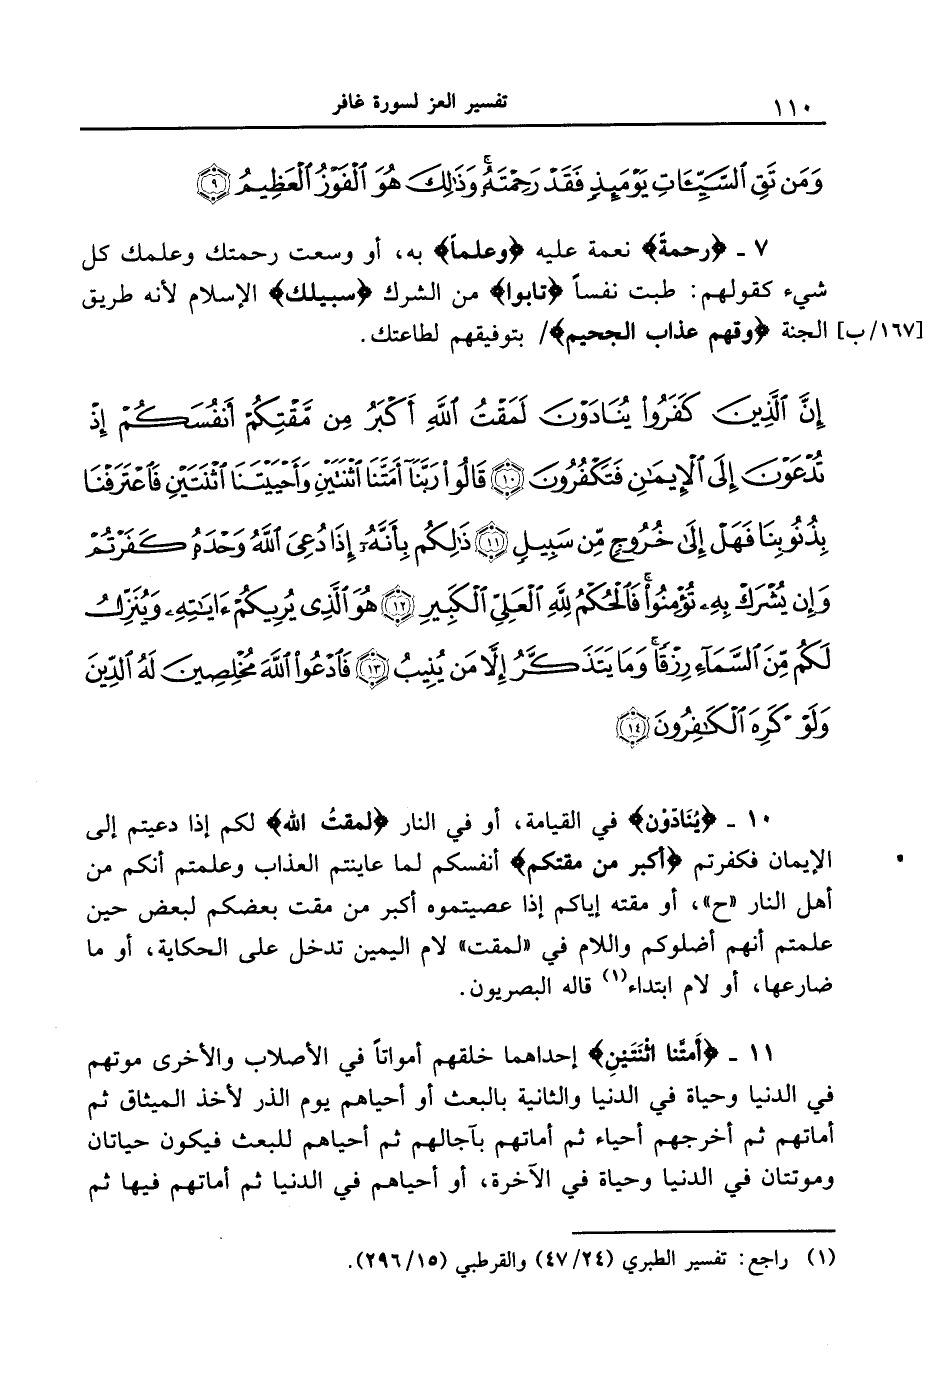 ١١٠ تفسير العز لسورة غافر
وَمَن تَقِ ٱلسَّيِّـَٔاتِ يَوْمَئِذٍ فَقَدْ رَحِمْتَهُۥۚ وَذَٰلِكَ هُوَ ٱلْفَوْزُ ٱلْعَظِيمُ ۝٩
٧ ـ ﴿رحمةً﴾ نعمة عليه ﴿وعلماً﴾ به، أو وسعت رحمتك وعلمك كل
شيء كقولهم: طبت نفساً ﴿تابوا﴾ من الشرك ﴿سبيلك﴾ الإسلام لأنه طريق
[١٦٧/ب] الجنة ﴿وقهم عذاب الجحيم﴾/ بتوفيقهم لطاعتك.
إِنَّ ٱلَّذِينَ كَفَرُوا۟ يُنَادَوْنَ لَمَقْتُ ٱللَّهِ أَكْبَرُ مِن مَّقْتِكُمْ أَنفُسَكُمْ إِذْ
تُدْعَوْنَ إِلَى ٱلْإِيمَٰنِ فَتَكْفُرُونَ ۝١٠ قَالُوا۟ رَبَّنَآ أَمَتَّنَا ٱثْنَتَيْنِ وَأَحْيَيْتَنَا ٱثْنَتَيْنِ فَٱعْتَرَفْنَا
بِذُنُوبِنَا فَهَلْ إِلَىٰ خُرُوجٍ مِّن سَبِيلٍ ۝١١ ذَٰلِكُم بِأَنَّهُۥٓ إِذَا دُعِىَ ٱللَّهُ وَحْدَهُۥ كَفَرْتُمْ
وَإِن يُشْرَكْ بِهِۦ تُؤْمِنُوا۟ۚ فَٱلْحُكْمُ لِلَّهِ ٱلْعَلِىِّ ٱلْكَبِيرِ ۝١٢ هُوَ ٱلَّذِى يُرِيكُمْ ءَايَٰتِهِۦ وَيُنَزِّلُ
لَكُم مِّنَ ٱلسَّمَآءِ رِزْقًاۚ وَمَا يَتَذَكَّرُ إِلَّا مَن يُنِيبُ ۝١٣ فَٱدْعُوا۟ ٱللَّهَ مُخْلِصِينَ لَهُ ٱلدِّينَ
وَلَوْ كَرِهَ ٱلْكَٰفِرُونَ ۝١٤
١٠ ـ ﴿يُنَادَوْن﴾ في القيامة، أو في النار ﴿لمقتُ الله﴾ لكم إذا دعيتم إلى
الإيمان فكفرتم ﴿أكبر من مقتكم﴾ أنفسكم لما عاينتم العذاب وعلمتم أنكم من
أهل النار «ح»، أو مقته إياكم إذا عصيتموه أكبر من مقت بعضكم لبعض حين
علمتم أنهم أضلوكم واللام في «لمقت» لام اليمين تدخل على الحكاية، أو ما
ضارعها، أو لام ابتداء(١) قاله البصريون.
١١ ـ ﴿أَمتَّنا اثْنَتَيْنِ﴾ إحداهما خلقهم أمواتاً في الأصلاب والأخرى موتهم
في الدنيا وحياة في الدنيا والثانية بالبعث أو أحياهم يوم الذر لأخذ الميثاق ثم
أماتهم ثم أخرجهم أحياء ثم أماتهم بآجالهم ثم أحياهم للبعث فيكون حياتان
وموتتان في الدنيا وحياة في الآخرة، أو أحياهم في الدنيا ثم أماتهم فيها ثم
(١) راجع: تفسير الطبري (٤٧/٢٤) والقرطبي (٢٩٦/١٥).